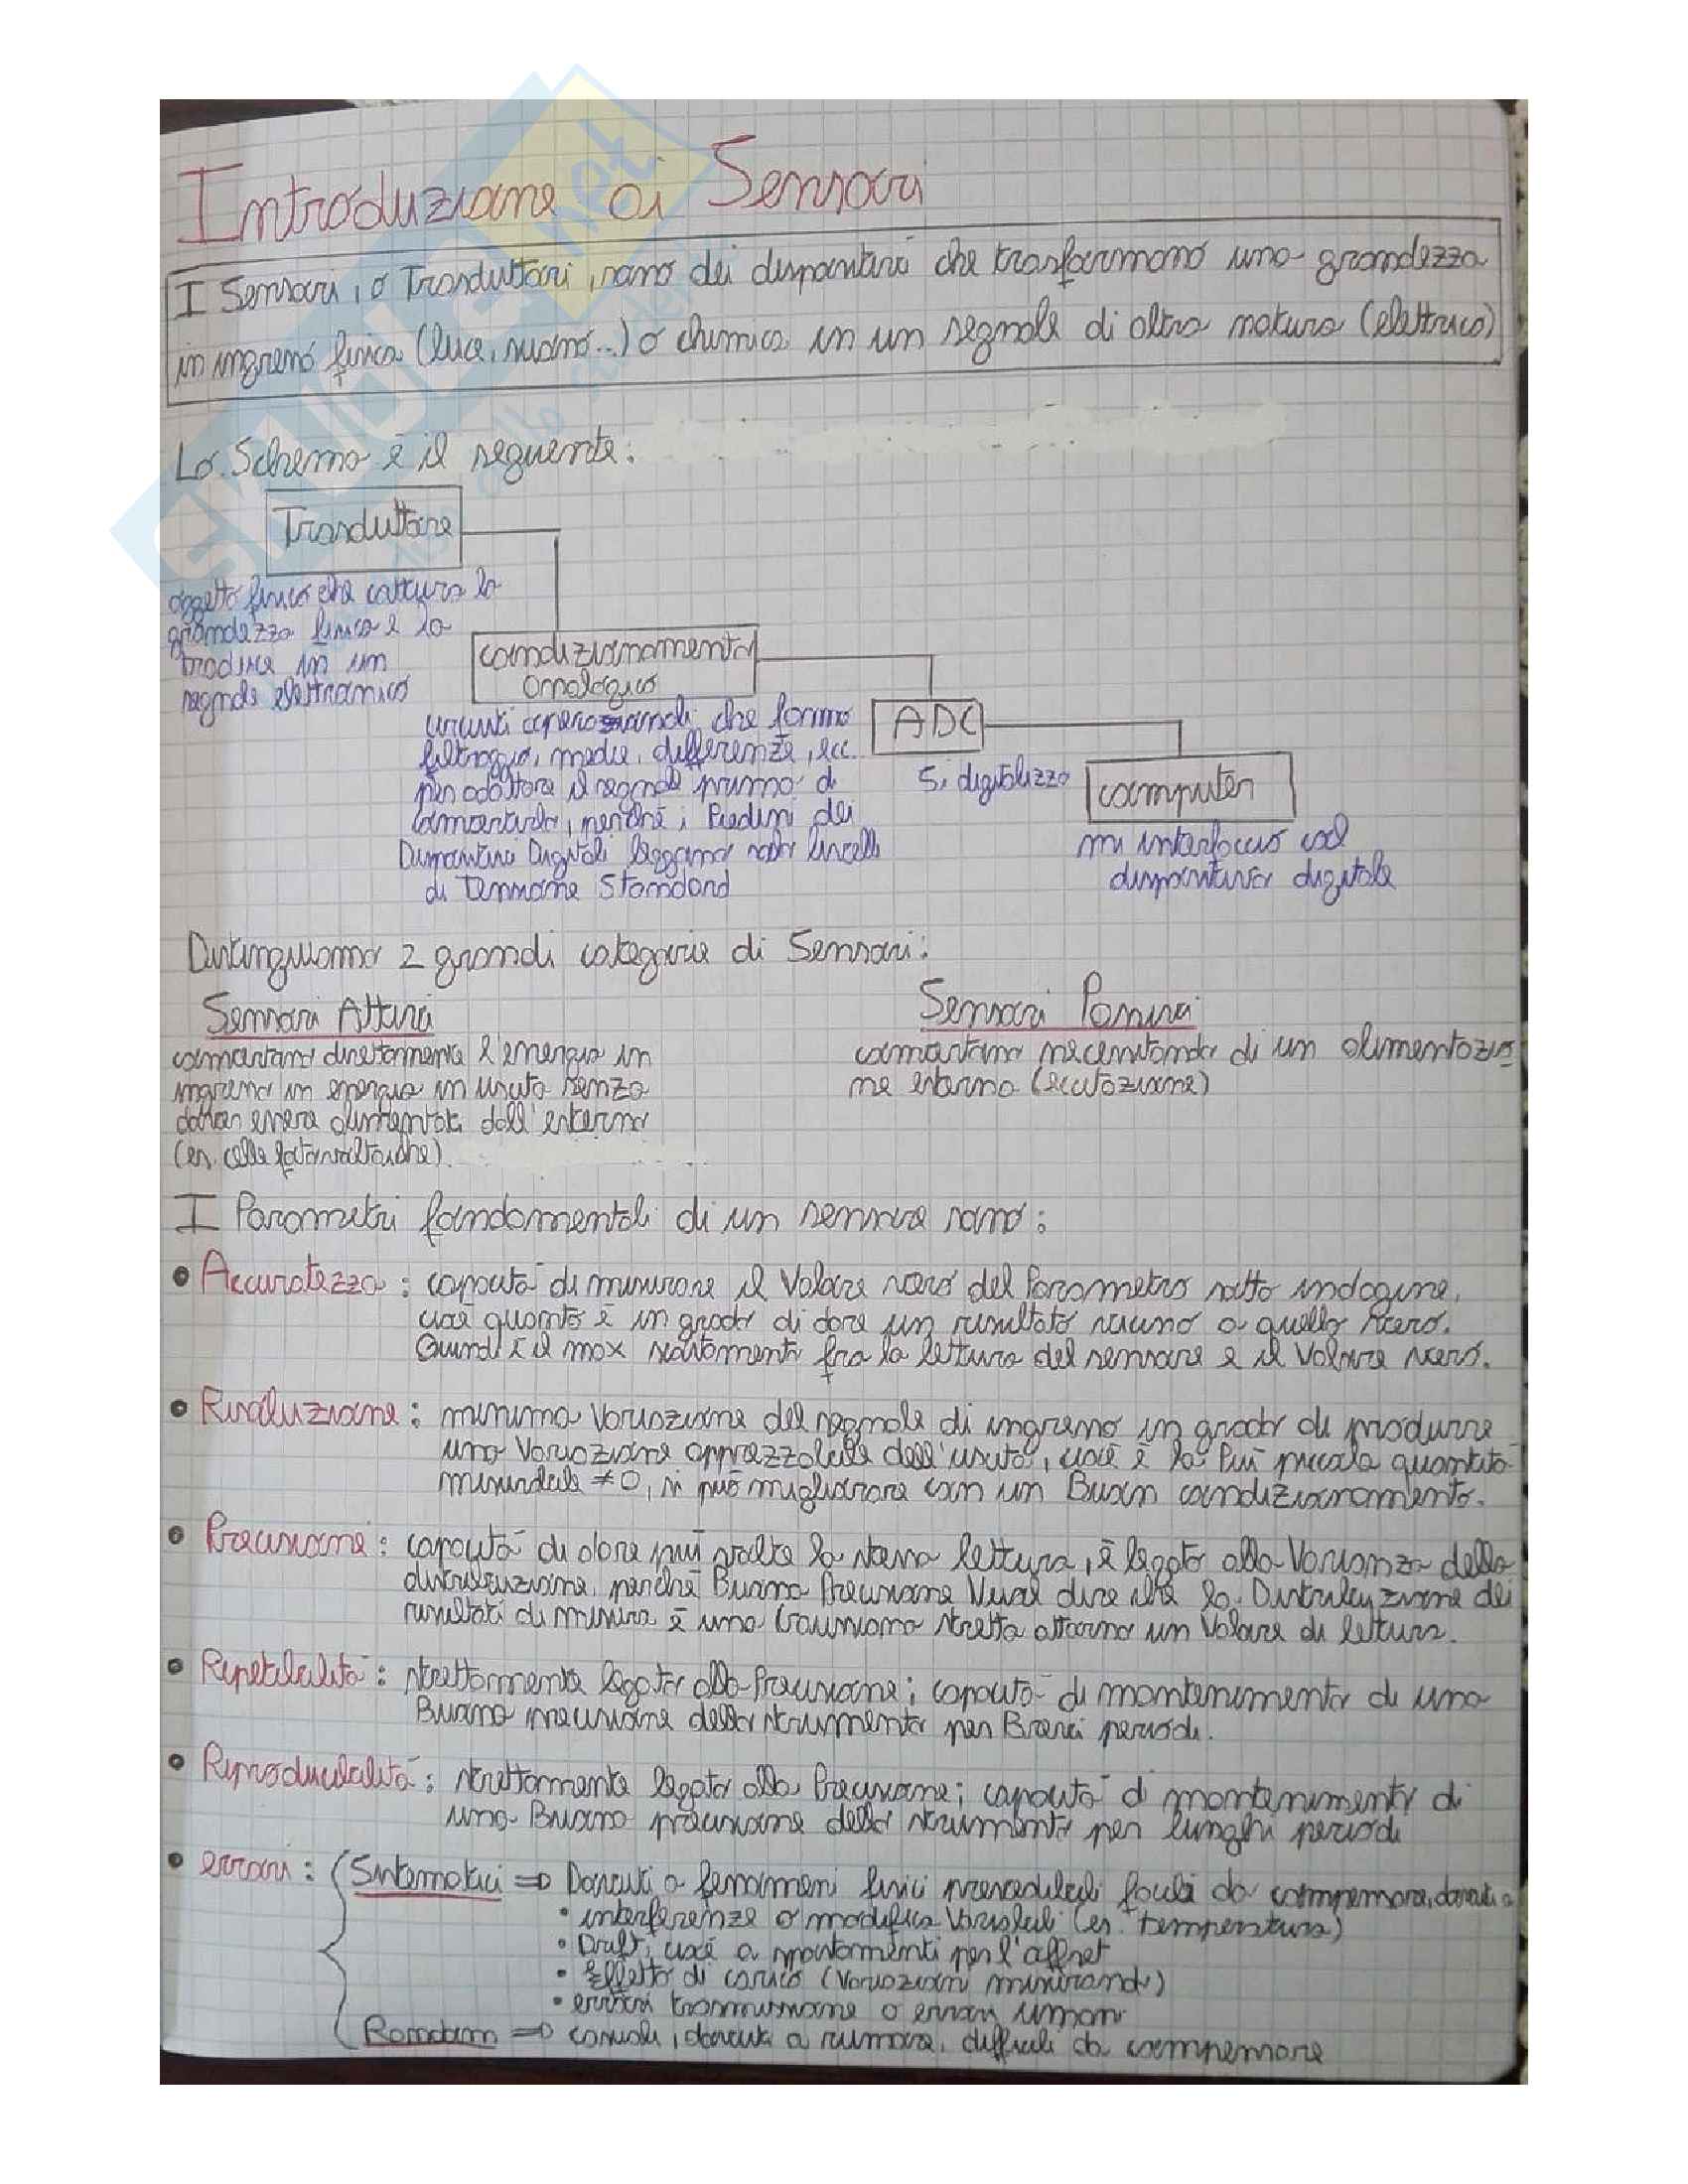 Introduzione ai Sensori
I Sensori, o Trasduttori, sono dei dispositivi che trasformano una grandezza
in ingresso fisica (luce, suono...) o chimica in un segnale di altra natura (elettrico)
Lo Schema è il seguente:
Trasduttore
oggetto fisico che cattura la
grandezza fisica e la
traduce in un
segnale elettronico
condizionamento
analogico
circuiti operazionali che fanno
filtraggio, medie, differenze, ecc.
per adattare il segnale prima di
convertirlo, perché i Piedini dei
Dispositivi Digitali leggono solo livelli
di tensione standard
ADC
Si digitalizza
computer
mi interfaccio col
dispositivo digitale
Distinguiamo 2 grandi categorie di Sensori:
Sensori Attivi
convertono direttamente l'energia in
ingresso in energia in uscita senza
dover essere alimentati dall'esterno
(es. celle fotovoltaiche).
Sensori Passivi
convertono necessitando di un alimentazio
ne esterna (eccitazione)
I Parametri fondamentali di un sensore sono:
• Accuratezza: capacità di misurare il Valore vero del Parametro sotto indagine,
cioè quanto è in grado di dare un risultato vicino a quello vero.
Quindi è il max scostamento fra la lettura del sensore e il Valore vero.
• Risoluzione: minima Variazione del segnale di ingresso in grado di produrre
una Variazione apprezzabile dell'uscita, cioè è la Più piccola quantità
misurabile ≠0, si può migliorare con un Buon condizionamento.
• Precisione: capacità di dare più volte la stessa lettura, è legata alla Varianza della
distribuzione, perché Buona Precisione Vuol dire che la Distribuzione dei
risultati di misura è una Gaussiana stretta attorno un Valore di lettura.
• Ripetibilità: strettamente legata alla Precisione; capacità di mantenimento di una
Buona precisione dello strumento per Brevi periodi.
• Riproducibilità: strettamente legata alla Precisione; capacità di mantenimento di
una Buona precisione dello strumento per lunghi periodi
• errori: Sistematici => Dovuti a fenomeni fisici prevedibili facili da compensare, dovuti a
• interferenze o modifica Variabili (es. temperatura)
• Drift, cioè a spostamenti per l'offset
• Effetto di carico (Variazioni misurando)
• errori trasmissione o errori umani
Random => casuali, dovuti a rumore, difficili da compensare
SKUOLA.net